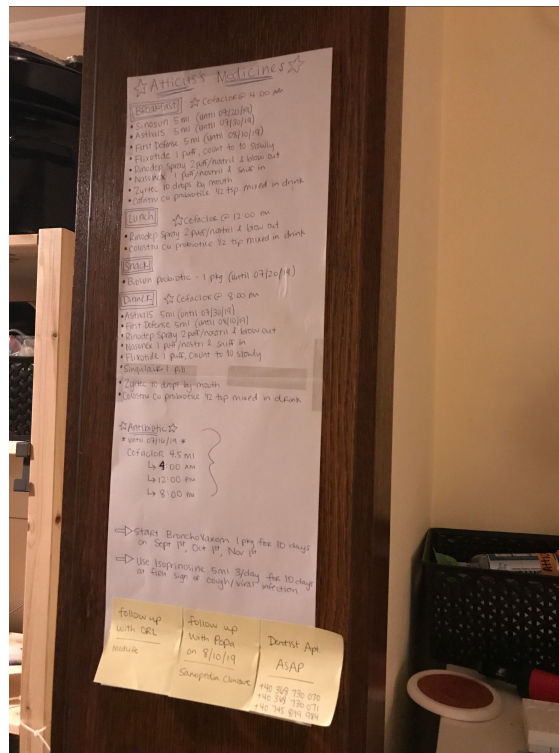 ☆ Atticus's Medicines ☆
Breakfast ☆ Cefaclor @ 4:00 AM
• Sinosun 5 ml (until 07/20/19)
• Asthals 5 ml (until 07/30/19)
• First Defense 5 ml (until 08/10/19)
• Flixotide 1 puff, count to 10 slowly
• Rinodep Spray 2 puff/nostril & blow out
• Nasonex 1 puff/nostril & sniff in
• Zyrtec 10 drops by mouth
• Colostru cu probiotice 1/2 tsp mixed in drink
Lunch ☆ Cefaclor @ 12:00 PM
• Rinodep Spray 2 puff/nostril & blow out
• Colostru cu probiotice 1/2 tsp mixed in drink
Snack
probiotic - 1 pkg (until 07/20/19)
Dinner ☆ Cefaclor @ 8:00 PM
• Asthals 5ml (until 07/30/19)
• First Defense 5ml (until 08/10/19)
• Rinodep Spray 2 puff/nostril & blow out
• Nasonex 1 puff/nostril & sniff in
• Flixotide 1 puff, count to 10 slowly
• Singulair 1 pill
• Zyrtec 10 drops by mouth
• Colostru cu probiotice 1/2 tsp mixed in drink
☆ Antibiotic ☆
* until 07/16/19 *
Cefaclor 4.5 ml
↳ 4:00 AM
↳ 12:00 PM
↳ 8:00 PM
⇒ Start Bronchovaxom 1 pkg for 10 days
on Sept 1st, Oct 1st, Nov 1st
⇒ Use Isoprinosine 5ml 3/day for 10 days
at first sign of cough/viral infection
follow up
with ORL
Medlife
follow up
with Popa
on 8/10/19
Sanopedia Clinique
Dentist Apt.
ASAP
+40 369 730 070
+40 369 730 071
+40 745 899 984